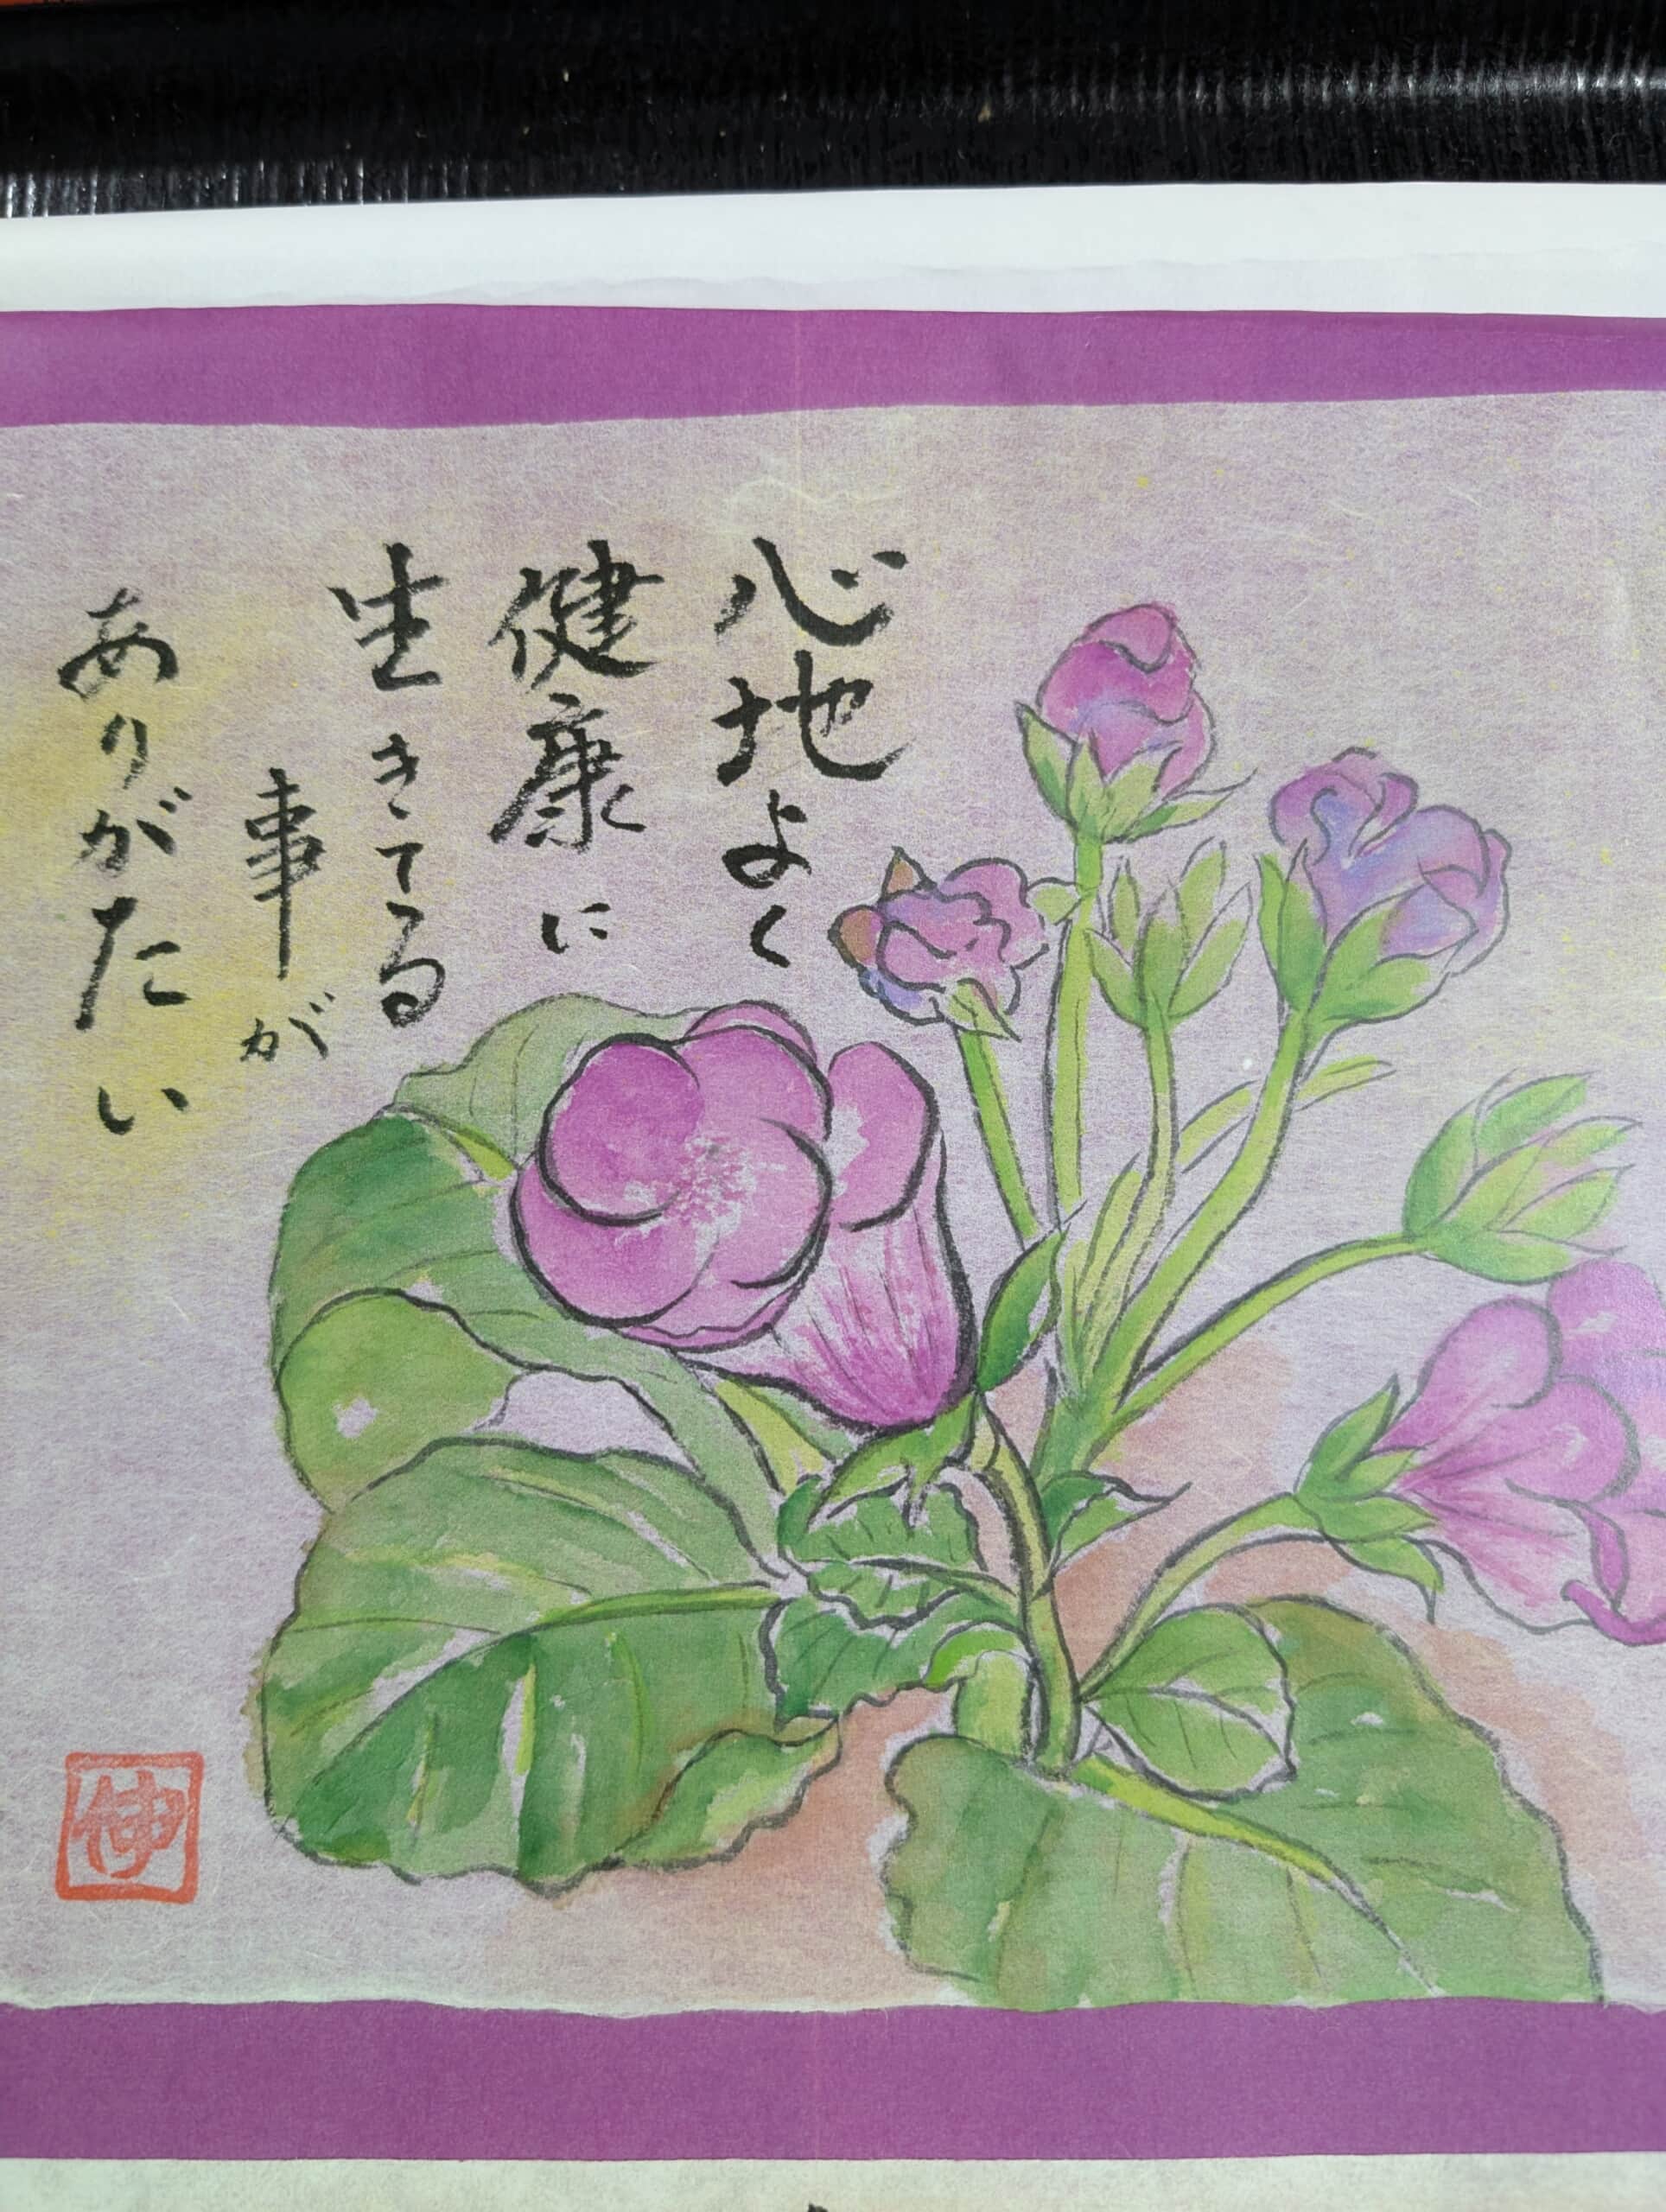 心地よく
健康に
生きてる
事が
ありがたい
伊